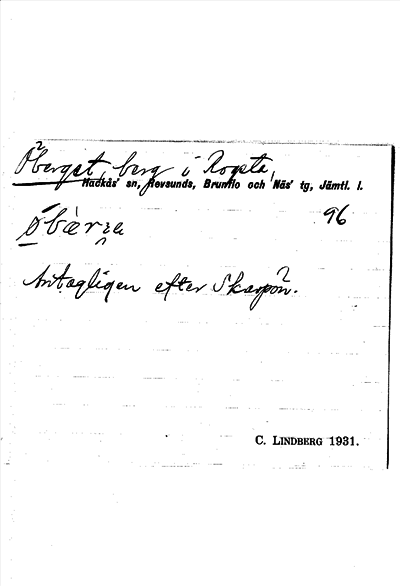 Öberget, berg i Rogsta,
Hackås' sn, Revsunds, Brunflo och Näs' tg, Jämtl. l.
96
Antagligen efter Skarpön.
C. LINDBERG 1931.